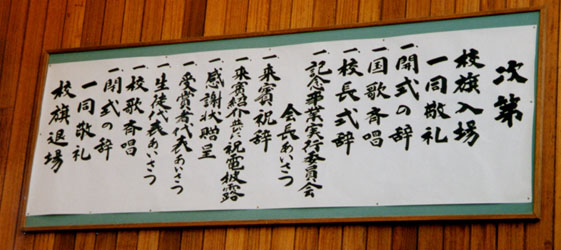 次第
校旗入場
一同敬礼
一開式の辞
一国歌斉唱
一校長式辞
一記念事業実行委員会
会長あいさつ
一来賓祝辞
一来賓紹介並に祝電披露
一感謝状贈呈
一受賞者代表あいさつ
一生徒代表あいさつ
一校歌斉唱
一閉式の辞
一同敬礼
校旗退場